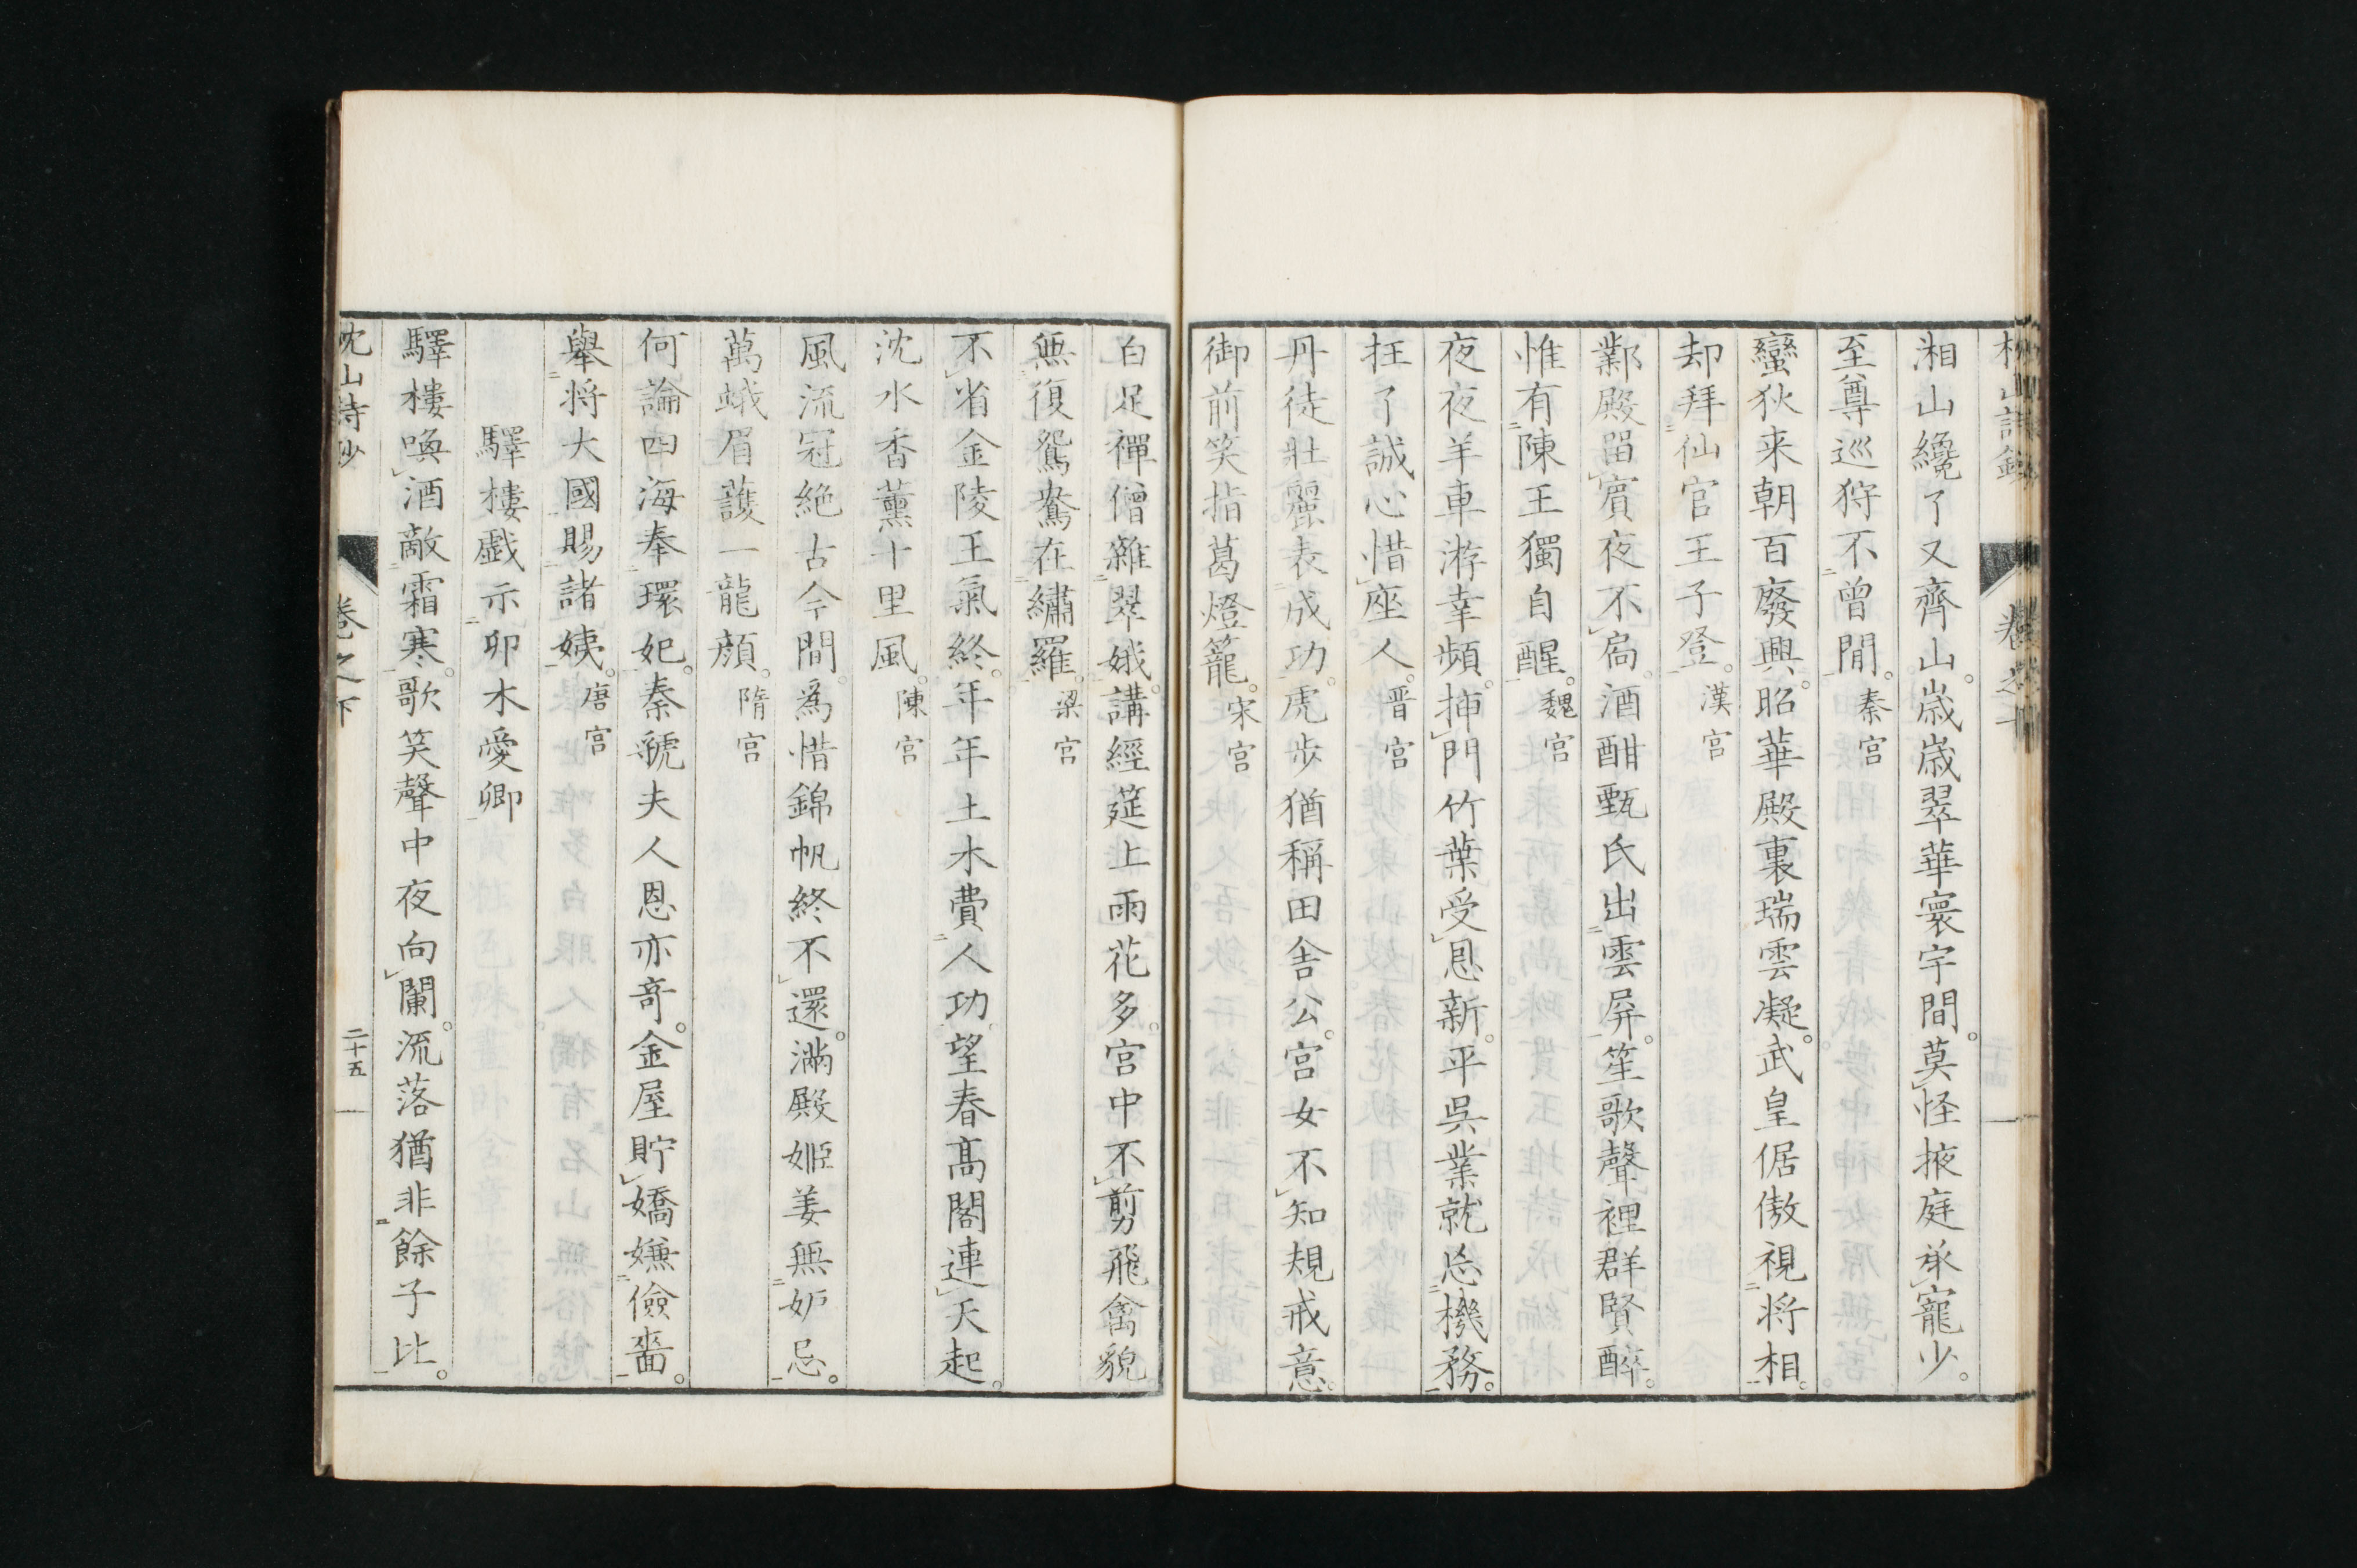 湘山纔了又齊山。歳歳翠華寰宇間。莫怪掖庭承寵少。
至尊巡狩不曾閒。秦宮
蠻狄来朝百廢興。昭華殿裏瑞雲凝。武皇倨傲視将相。
却拜仙官王子登。漢宮
鄴殿留賓夜不扃。酒酣甄氏出雲屏。笙歌聲裡群賢醉。
惟有陳王獨自醒。魏宮
夜夜羊車游幸頻。挿門竹葉受恩新。平呉業就忘機務。
抂了誠心惜座人。晋宮
丹徒壯麗表成功。虎步猶稱田舎公。宮女不知規戒意。
御前笑指葛燈籠。宋宮
白足禪僧雜翠娥。講經莚上雨花多。宮中不剪飛禽貌
無復鴛鴦在繡羅。梁宮
不省金陵王氣終。年年土木費人功。望春髙閣連天起。
沈水香薫十里風。陳宮
風流冠絶古今間。爲惜錦帆終不還。滿殿姬姜無妒忌。
萬蛾眉護一龍顔。隋宮
何論四海奉環妃。秦虢夫人恩亦竒。金屋貯嬌嫌儉嗇。
舉将大國賜諸姨。唐宮
驛樓戯示卯木愛卿
驛樓喚酒敵霜寒。歌笑聲中夜向闌。流落猶非餘子比。
枕山詩鈔
卷之下
二十五